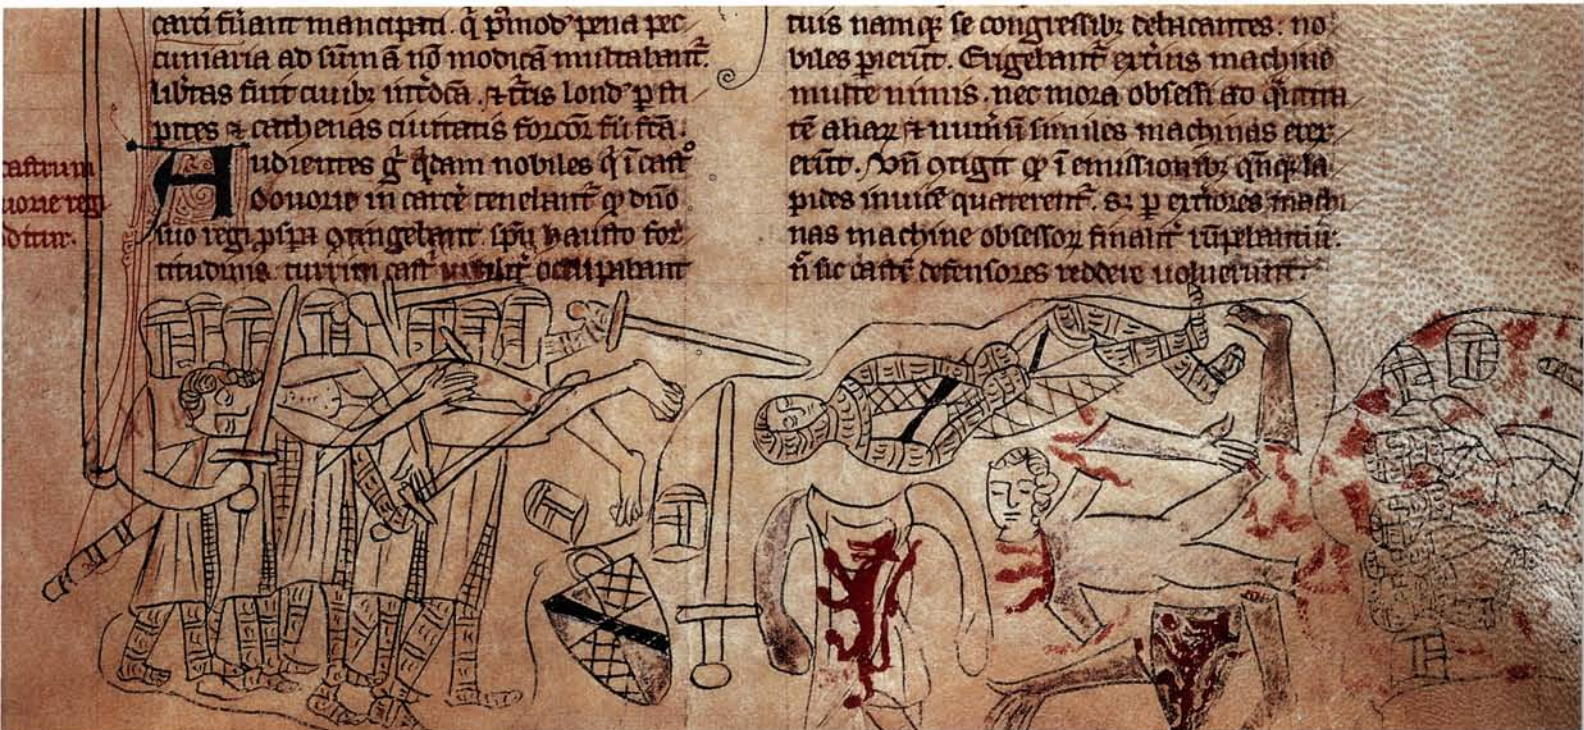 carci fuāt mancipati. q̇ p̄mod̛ pena pec
cuniaria ad sūmā nō modicā multabant̄.
lib̄tas fuit ciuibꝫ int̄dc̄a. ⁊ lond̛ ꝑ sti
pites ⁊ cathenas ciuitatis fū fc̄a.
Audientes g̊ q̇dam nobiles q̇ ī cast̊
douorie in carcē tenebant̄ ꝙ dn̄o
suo regi ꝓspa ꝯtingebant. sp̄u hausto for
titudinis turrim cast̄ occupabant
castrum
uorie regi
ditur.
tuis namqꝫ se congressibꝫ no
biles ꝑierūt. Erigebant̄ ext̄ius machine
multe nimis. nec mora obsessi ad q̄ntita
tē aliaꝝ ⁊ num̄ū similes machinas erex
erūt. Vn̄ ꝯtigit ꝙ ī emissionibꝫ qn̄qꝫ la
pides inuicē quaterent̄. sꝫ ꝑ ext̄iores machi
nas machine obsessoꝝ finalit̄ rūpebantur.
n̄ sic defensores reddere uoluerunt.